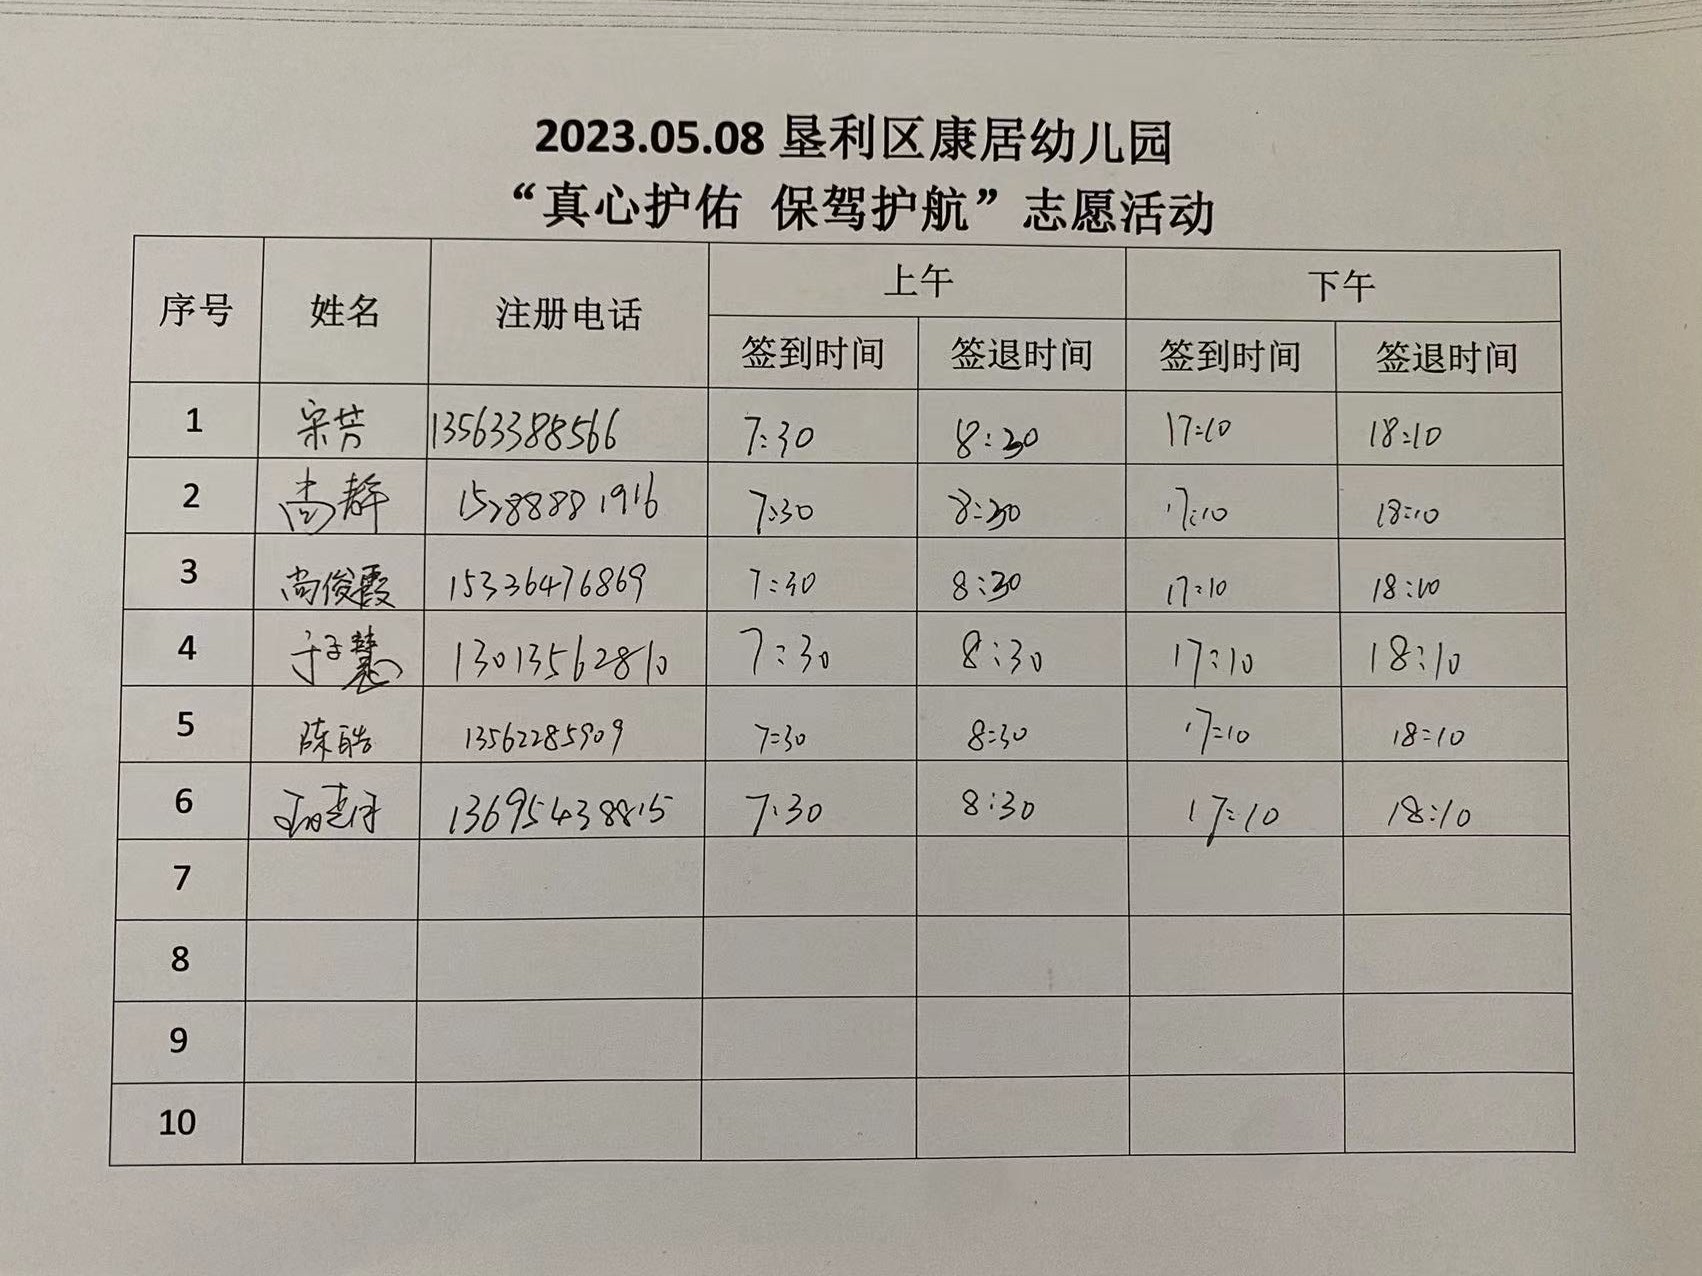 2023.05.08 垦利区康居幼儿园
“真心护佑 保驾护航”志愿活动
序号 姓名 注册电话 上午 下午
签到时间 签退时间 签到时间 签退时间
1 宋芳 13563388566 7:30 8:30 17:10 18:10
2 尚静 15288881916 7:30 8:30 17:10 18:10
3 尚俊霞 15336476869 7:30 8:30 17:10 18:10
4 于子慧 13013562810 7:30 8:30 17:10 18:10
5 陈皓 13562285909 7:30 8:30 17:10 18:10
6 13695438815 7:30 8:30 17:10 18:10
7
8
9
10